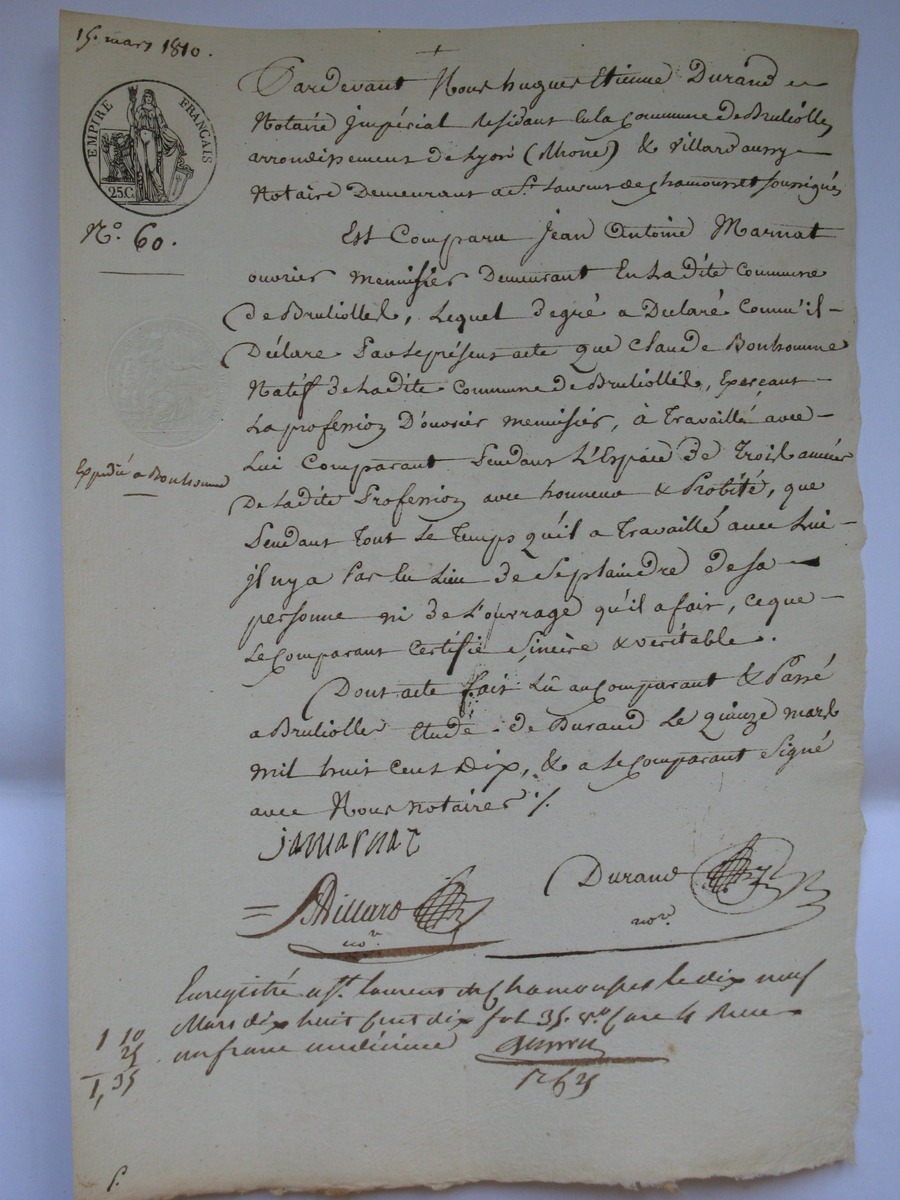 15. mars 1810.
EMPIRE FRANÇAIS
25C.
N.o 60.
Expédié a Bonhomme
Pardevant Nous hugues Etienne Durand
Notaire Impérial Residant en la Commune de Brulliolles
arrondissement de Lyon (Rhone) & villard aussy
Notaire Demeurant a St. Laurent de Chamousset soussignés
Est Comparu Jean Antoine Marnat
ouvrier menuisier Demeurant En La dite Commune
de Brulliolles, Lequel de gré a Déclaré Comm'il
Déclare Par Le présent acte que Claude Bonhomme
Natif de La dite Commune de Brulliolles, Exerçant
La profession D'ouvrier menuisier, à Travaillé avec
Lui Comparant Pendant L'Espace de Trois années
De La dite Profession avec honneur & Probité, que
Pendant Tout Le Temps qu'il a Travaillé avec Lui
il n'y a Pas Eu Lieu de Se plaindre de sa
personne ni de L'ouvrage qu'il a fait, ce que
Le Comparant Certifie Sincère & véritable.
Dont acte fait Lû au Comparant & Passé
a Brulliolles Etude de Durand Le quinze mars
mil huit cent dix, & a Le Comparant Signé
avec Nous notaires ./.
jamarnat
Villard
nore.
Durand
nore.
Enregistré a St. Laurent de Chamousset le dix neuf
Mars dix huit cent dix fol. 35. vo. Case 4 Reçu
un franc un décime
1 10
25
1, 35